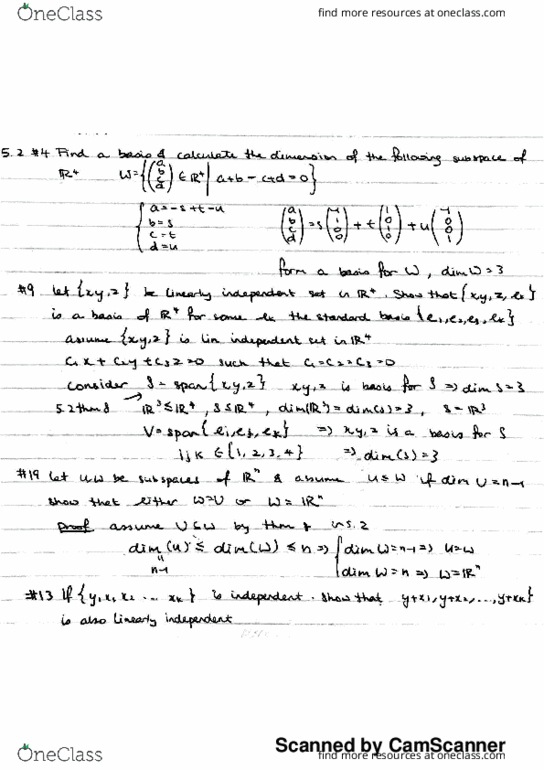 OneClass
find more resources at oneclass.com
5.2 #4 Find a basis & calculate the dimension of the following subspace of
ℝ⁴ W={(a b c d) ∈ ℝ⁴ | a+b-c+d=0}
{a=-s+t-u
b=s
c=t
d=u
(a b c d) = s(-1 1 0 0) + t(1 0 1 0) + u(-1 0 0 1)
form a basis for W, dim W=3
#9 let {x,y,z} be linearly independent set in ℝ⁴. Show that {x,y,z,eₖ}
is a basis of ℝ⁴ for some eₖ the standard basis {e₁,e₂,e₃,e₄}
assume {x,y,z} is lin independent set in ℝ⁴
C₁x + C₂y + C₃z=0 such that C₁=C₂=C₃=0
consider S=span{x,y,z} x,y,z is basis for S ⇒ dim S=3
5.2 thm 8 ℝ³≤ℝ⁴, S≤ℝ⁴, dim(ℝ³)=dim(S)=3, S=ℝ³
V=span{eᵢ,eⱼ,eₖ} ⇒ x,y,z is a basis for S
i,j,k ∈{1,2,3,4} ⇒ dim(S)=3
#19 let U,W be subspaces of ℝⁿ & assume U≤W if dim U=n-1
show that either W=U or W=ℝⁿ
Proof assume U≤W by thm in 5.2
dim(U) ≤ dim(W) ≤ n ⇒ {dim W=n-1 ⇒ U=W
n-1
dim W=n ⇒ W=ℝⁿ
#13 If {y,x₁,x₂ ... xₖ} is independent. show that y+x₁,y+x₂,...,y+xₖ}
is also linearly independent
Scanned by CamScanner
OneClass
find more resources at oneclass.com